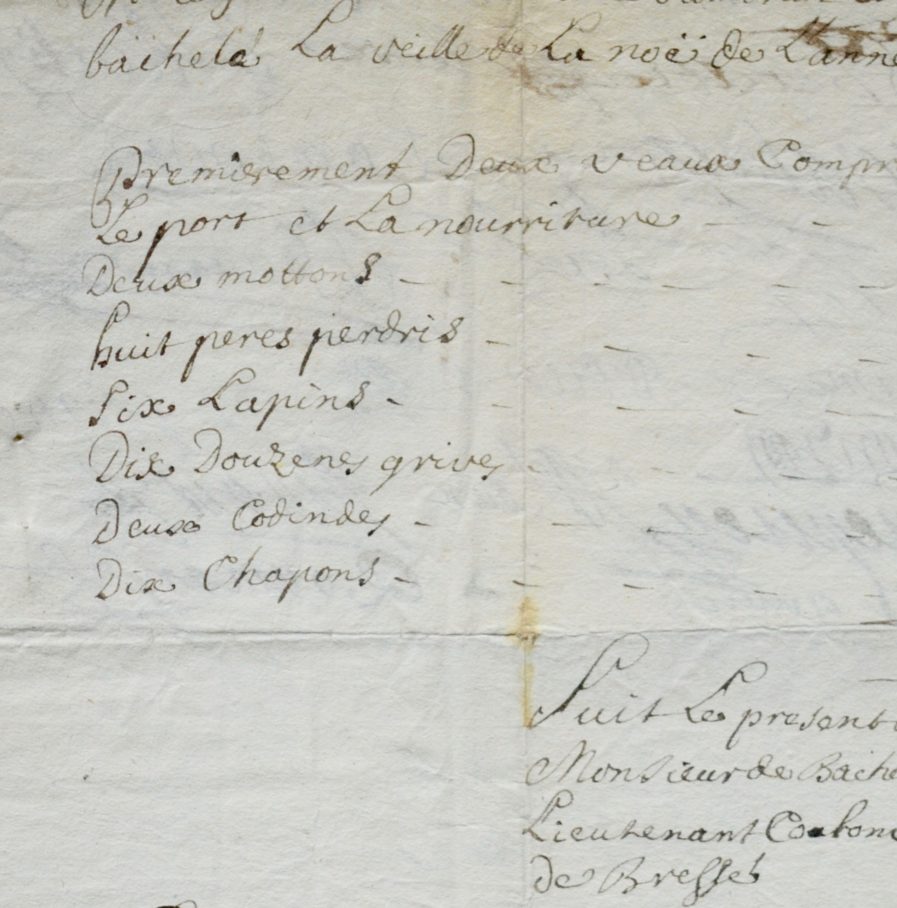 bachelé La veille de La noë de L'anné
Premierement Deux veaux Compr
Le port et La nourriture
Deux mottons
huit peres perdris
six Lapins
Dix Douzenes grives
Deux Codindes
Dix Chapons
Suit Le present
Monsieur de Bache
Lieutenant Coulon
de Bresse